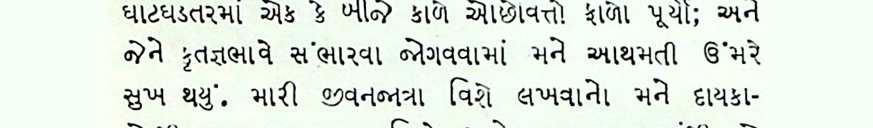 ઘાટઘડતરમાં એક કે બીજે કાળે ઓછોવત્તો ફાળો પૂર્યો; અને
જેને કૃતજ્ઞભાવે સંભારવા જોગવવામાં મને આથમતી ઉંમરે
સુખ થયું. મારી જીવનજાત્રા વિશે લખવાનો મને દાયકા-